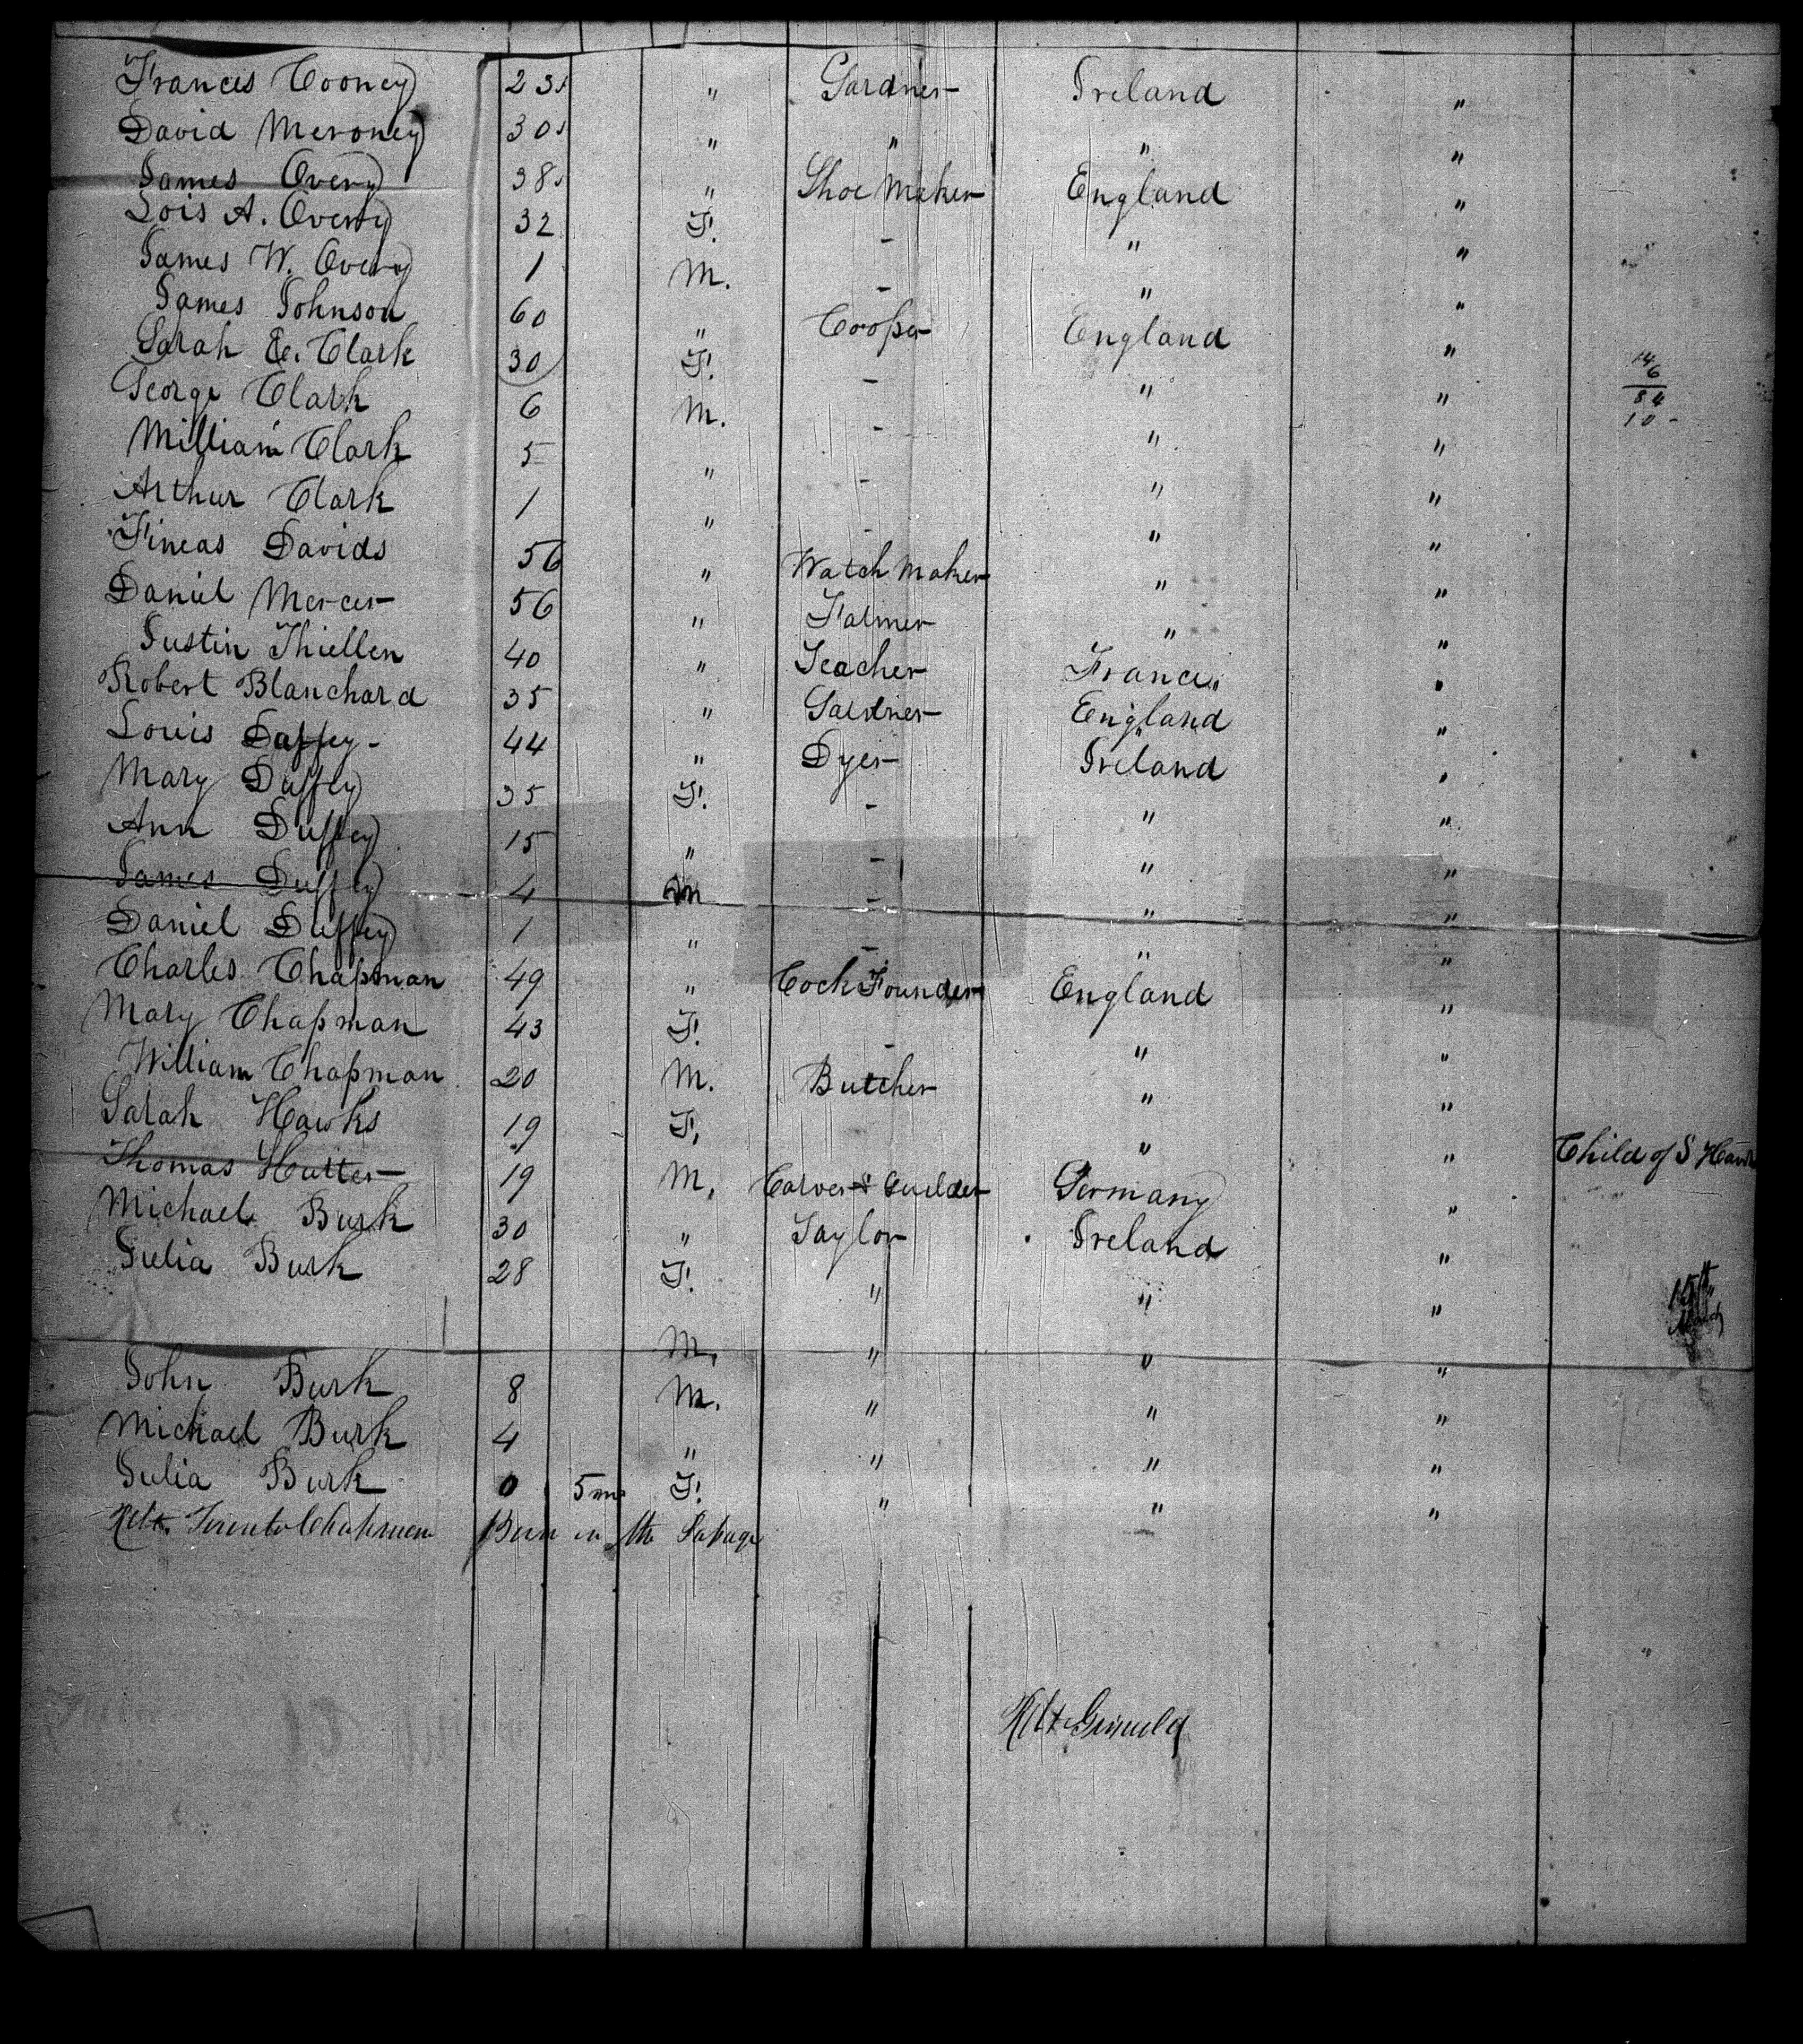 Frances Cooney 23 " Gardner Ireland "
David Meroney 30 " " " "
James Overy 38 " Shoe Maker England "
Lois A. Overy 32 F. - " "
James W. Overy 1 M. - " "
James Johnson 60 " Cooper England "
Sarah E. Clark 30 F. - " " 14
George Clark 6 M. - " " 6
84
William Clark 5 " - " " 10 -
Arthur Clark 1 " - " "
Fineas Davids 56 " Watch Maker " "
Daniel Mercer 56 " Falmer " "
Justin Thiellen 40 " Teacher France "
Robert Blanchard 35 " Gardner England "
Louis Duffey - 44 " Dyer Ireland "
Mary Duffey 35 F. - " "
Ann Duffey 15 " - " "
James Duffey 4 M - " "
Daniel Duffey 1 " - " "
Charles Chapman 49 " Cock Founder England "
Mary Chapman 43 F. - " "
William Chapman 20 M. Butcher " "
Sarah Hawks 19 F. " " Child of S
Thomas Hutter 19 M. Carver & Guilder Germany "
Michael Burk 30 " Taylor Ireland "
Julia Burk 28 F. " " " 15th
M. " " "
John Burk 8 M. " " "
Michael Burk 4 " " " "
Julia Burk 0 5 m F. " " "
Born in the